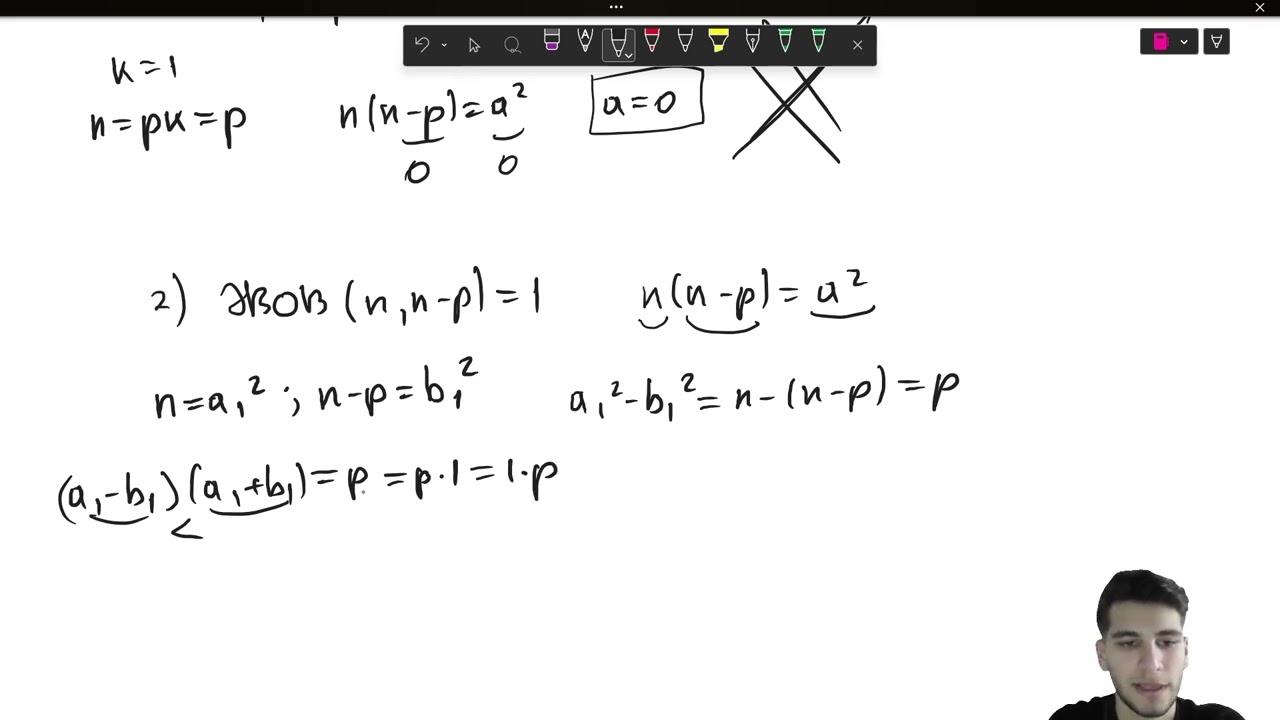 k=1
n=pk=p n(n-p)=a² a=0
0 0
2) ӘВОВ (n,n-p)=1 n(n-p)=a²
n=a₁² ; n-p=b₁² a₁²-b₁²=n-(n-p)=p
(a₁-b₁)(a₁+b₁)=p=p·1=1·p
<